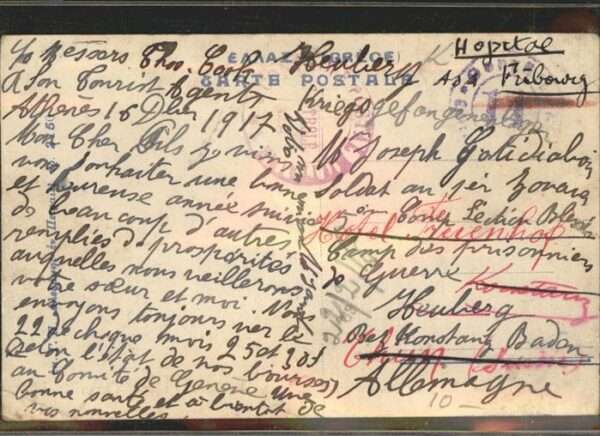 c/o Messrs Thos. Cook
& Son Tourist Agents
Athènes 15 Dec 1917
Mon Cher Fils je viens
vous souhaiter une bonne
et heureuse année suivie
de beaucoup d'autres
remplies de prospérités
auxquelles nous veillerons
votre sœur et moi. Nous
envoyons toujours vers le
22 de chaque mois 25 et 30 f
(selon l'état de nos bourses)
au Comité de Genève. Une
bonne santé et à bientôt de
vos nouvelles
ΕΛΛΑΣ (GRECE)
CARTE POSTALE
Heuberg
Hopital
Fribourg
Kriegsgefangenen
M Joseph
Soldat au 1er Zouaves
Hotel
Camp des prisonniers
de Guerre
Konstanz
Heuberg
Bei Konstanz Baden
(Suisse)
Allemagne
10-